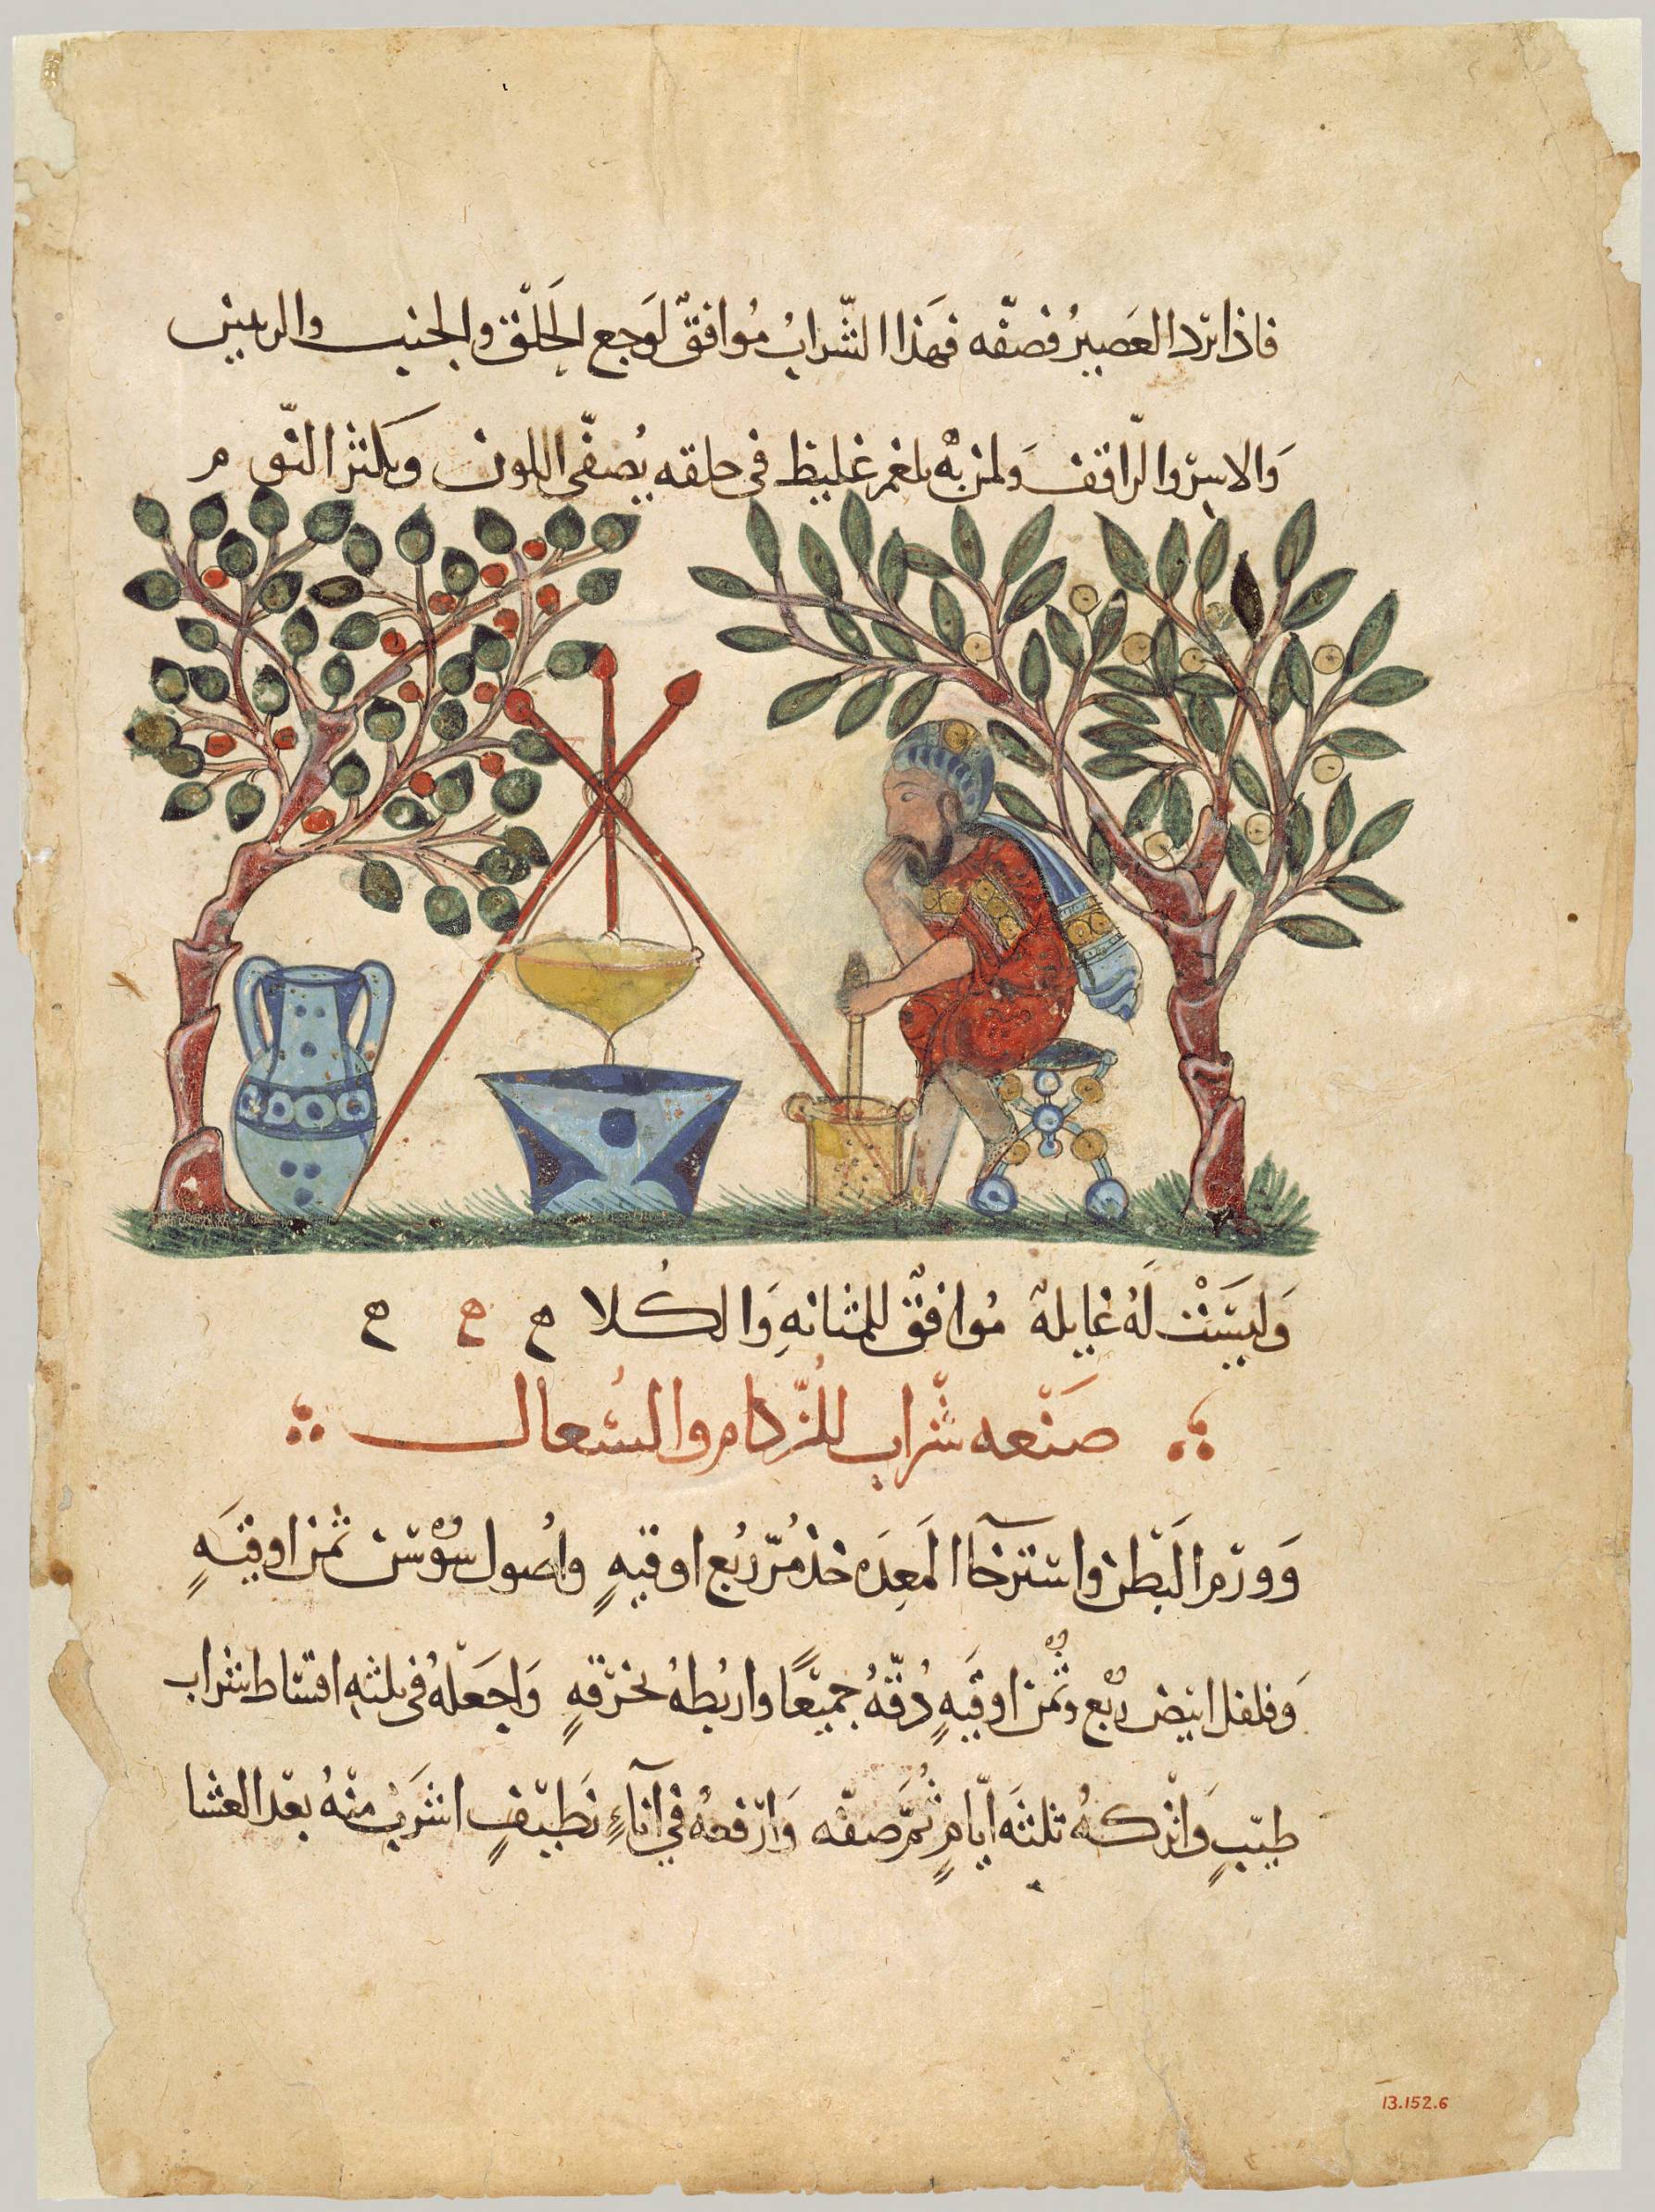 فاذا برد العَصيرُ فصفّه فهَذا الشّرابُ مُوافقٌ لوَجع الحَلْق والجنب والرية
وَالاسر والراقف وَلمن بهْ بلغم غليظ في حلقه يُصفّي اللون وَيكثر النّوم
وَليسَتْ لَهُ غايلة مُوافقٌ للمثانهِ وَالكُلا ح ح ح
صَنْعه شراب للزُّكام والسُعال
وَوَرْم البَطْن واسْترخآ المَعِدَه خذ مُرّ رُبع اوقيهٍ واُصُول سوُسَن ثمن اوقيَهٍ
وَفلفل ابيَض رُبع وثُمن اوقيَهٍ دُقّهُ جميْعًا واربُطهُ بخرْقهٍ وَاجعَلْهُ في ثلثهِ اقسَاط شراب
طيّبٍ وَاتْركهُ ثلثَه ايّامٍ ثُمَّ صفّه وَارْفعهُ في آناءٍ نَظيْفٍ اشرَبْ منْهُ بعْد العشا
13.152.6